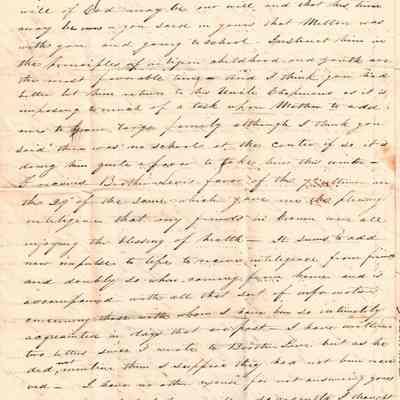 will of God may be our will, and that his time
may be ours you said in yours that Milton was
with you and going to school. Instruct him in
the principles of religion childhood and youth are
the most favorable time and I think you had
better let him return to his Uncle Chapmans as it is
imposing to much of a task upon Mother to add
ours to your large family although I think you
said there was no schools at the center if so it is
doing him quite a favor to take him this winter
I received Brother favor of the on
the 29th of the same which gave me the pleasing
inteligence that my friends in were all
enjoying the blessing of health It seems to add
new impulse to life to receive inteligence from friends
and doubly so when coming from home and is
accompanied with all that sort of information
concerning those with whom I have been so intimately
acquainted in days that are past I have written
two letters since I wrote to Brother but as he
did not mention them I suppose they had not been recei
ved I have no other excuse for not answering yours
I thought